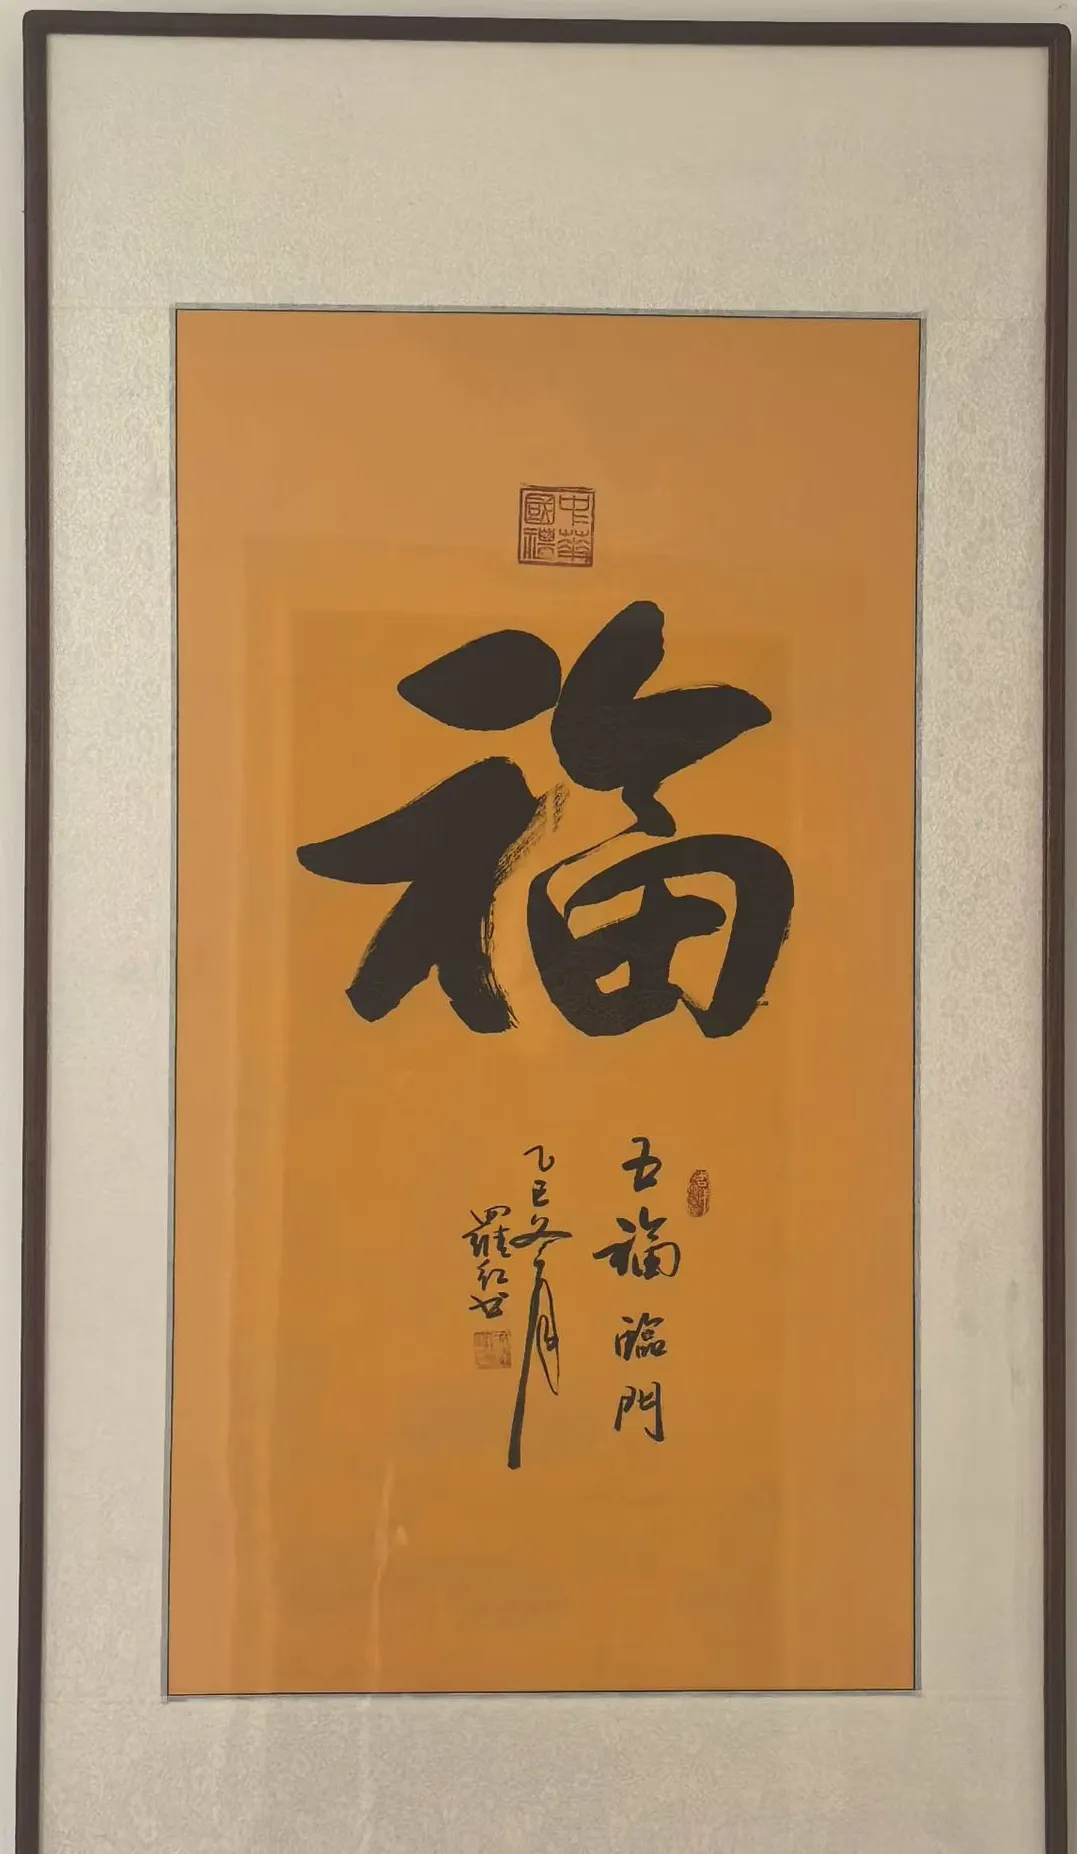 中華國禮
福
五福臨門
乙巳冬月
羅紅書